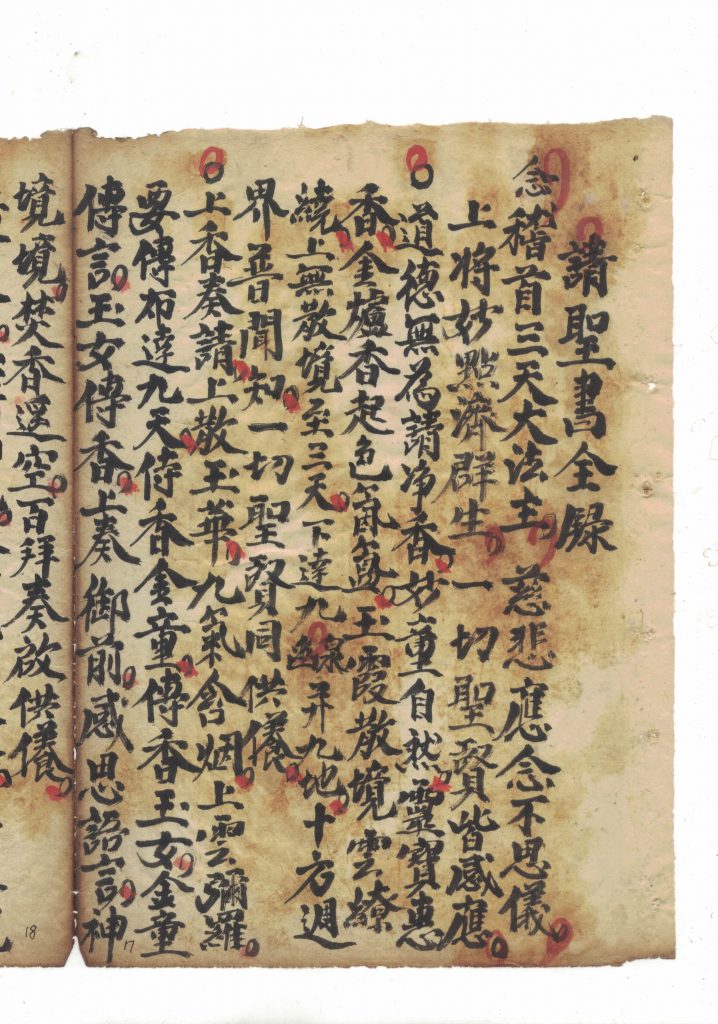 請聖書全錄
念稽首三天大法主 慈悲應念不思儀
上將妙點濟群生 一切聖賢皆感應
道德無為請净香妙童自然靈寶惠
香金爐香起色氤氳玉霞散境雲繚
繞上無散境至三天下達九幽泉并九地十方週
界普聞知一切聖賢同供儀
上香奏請上散玉華九氣含烟上雲彌羅
要傳布達九天侍香金童傳香玉女金童
傳言玉女傳香上奏御前感思詔言神
境境焚香遥空百拜奏啟供儀
17
18